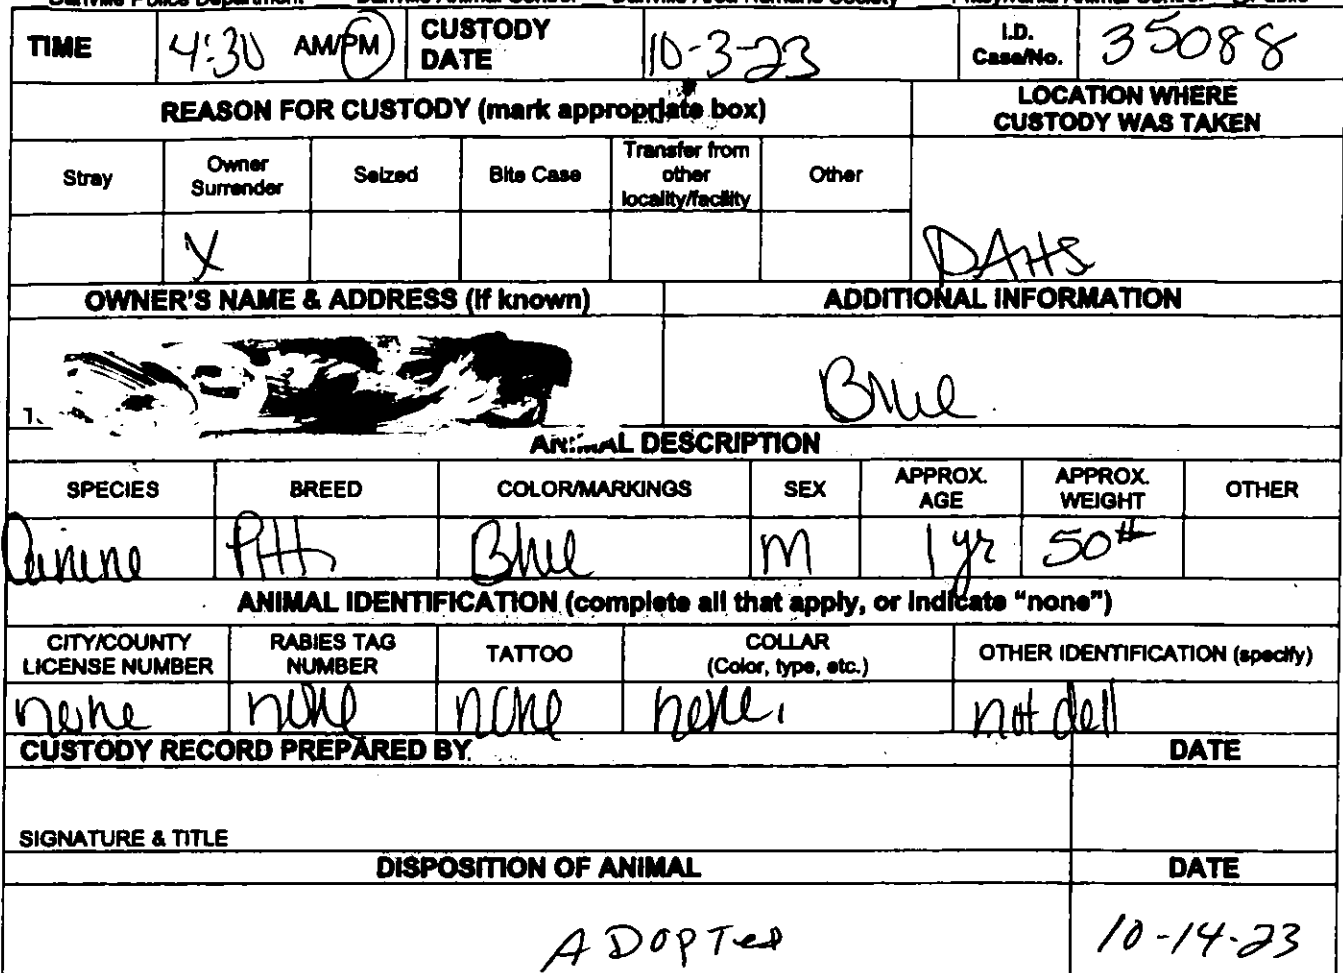 Danville Police Department Danville Animal Control Danville Area Humane Society Pittsylvania Animal Control Public
TIME 4:30 AM/PM CUSTODY DATE 10-3-23 I.D. Case/No. 35088
REASON FOR CUSTODY (mark appropriate box) LOCATION WHERE CUSTODY WAS TAKEN
Stray Owner Surrender Seized Bite Case Transfer from other locality/facility Other
X DAHS
OWNER'S NAME & ADDRESS (if known) ADDITIONAL INFORMATION
1. Blue
ANIMAL DESCRIPTION
SPECIES BREED COLOR/MARKINGS SEX APPROX. AGE APPROX. WEIGHT OTHER
Canine Pitt Blue M 1 yr 50#
ANIMAL IDENTIFICATION (complete all that apply, or indicate "none")
CITY/COUNTY LICENSE NUMBER RABIES TAG NUMBER TATTOO COLLAR (Color, type, etc.) OTHER IDENTIFICATION (specify)
none none none none. not
CUSTODY RECORD PREPARED BY. DATE
SIGNATURE & TITLE
DISPOSITION OF ANIMAL DATE
ADOPTed 10-14-23